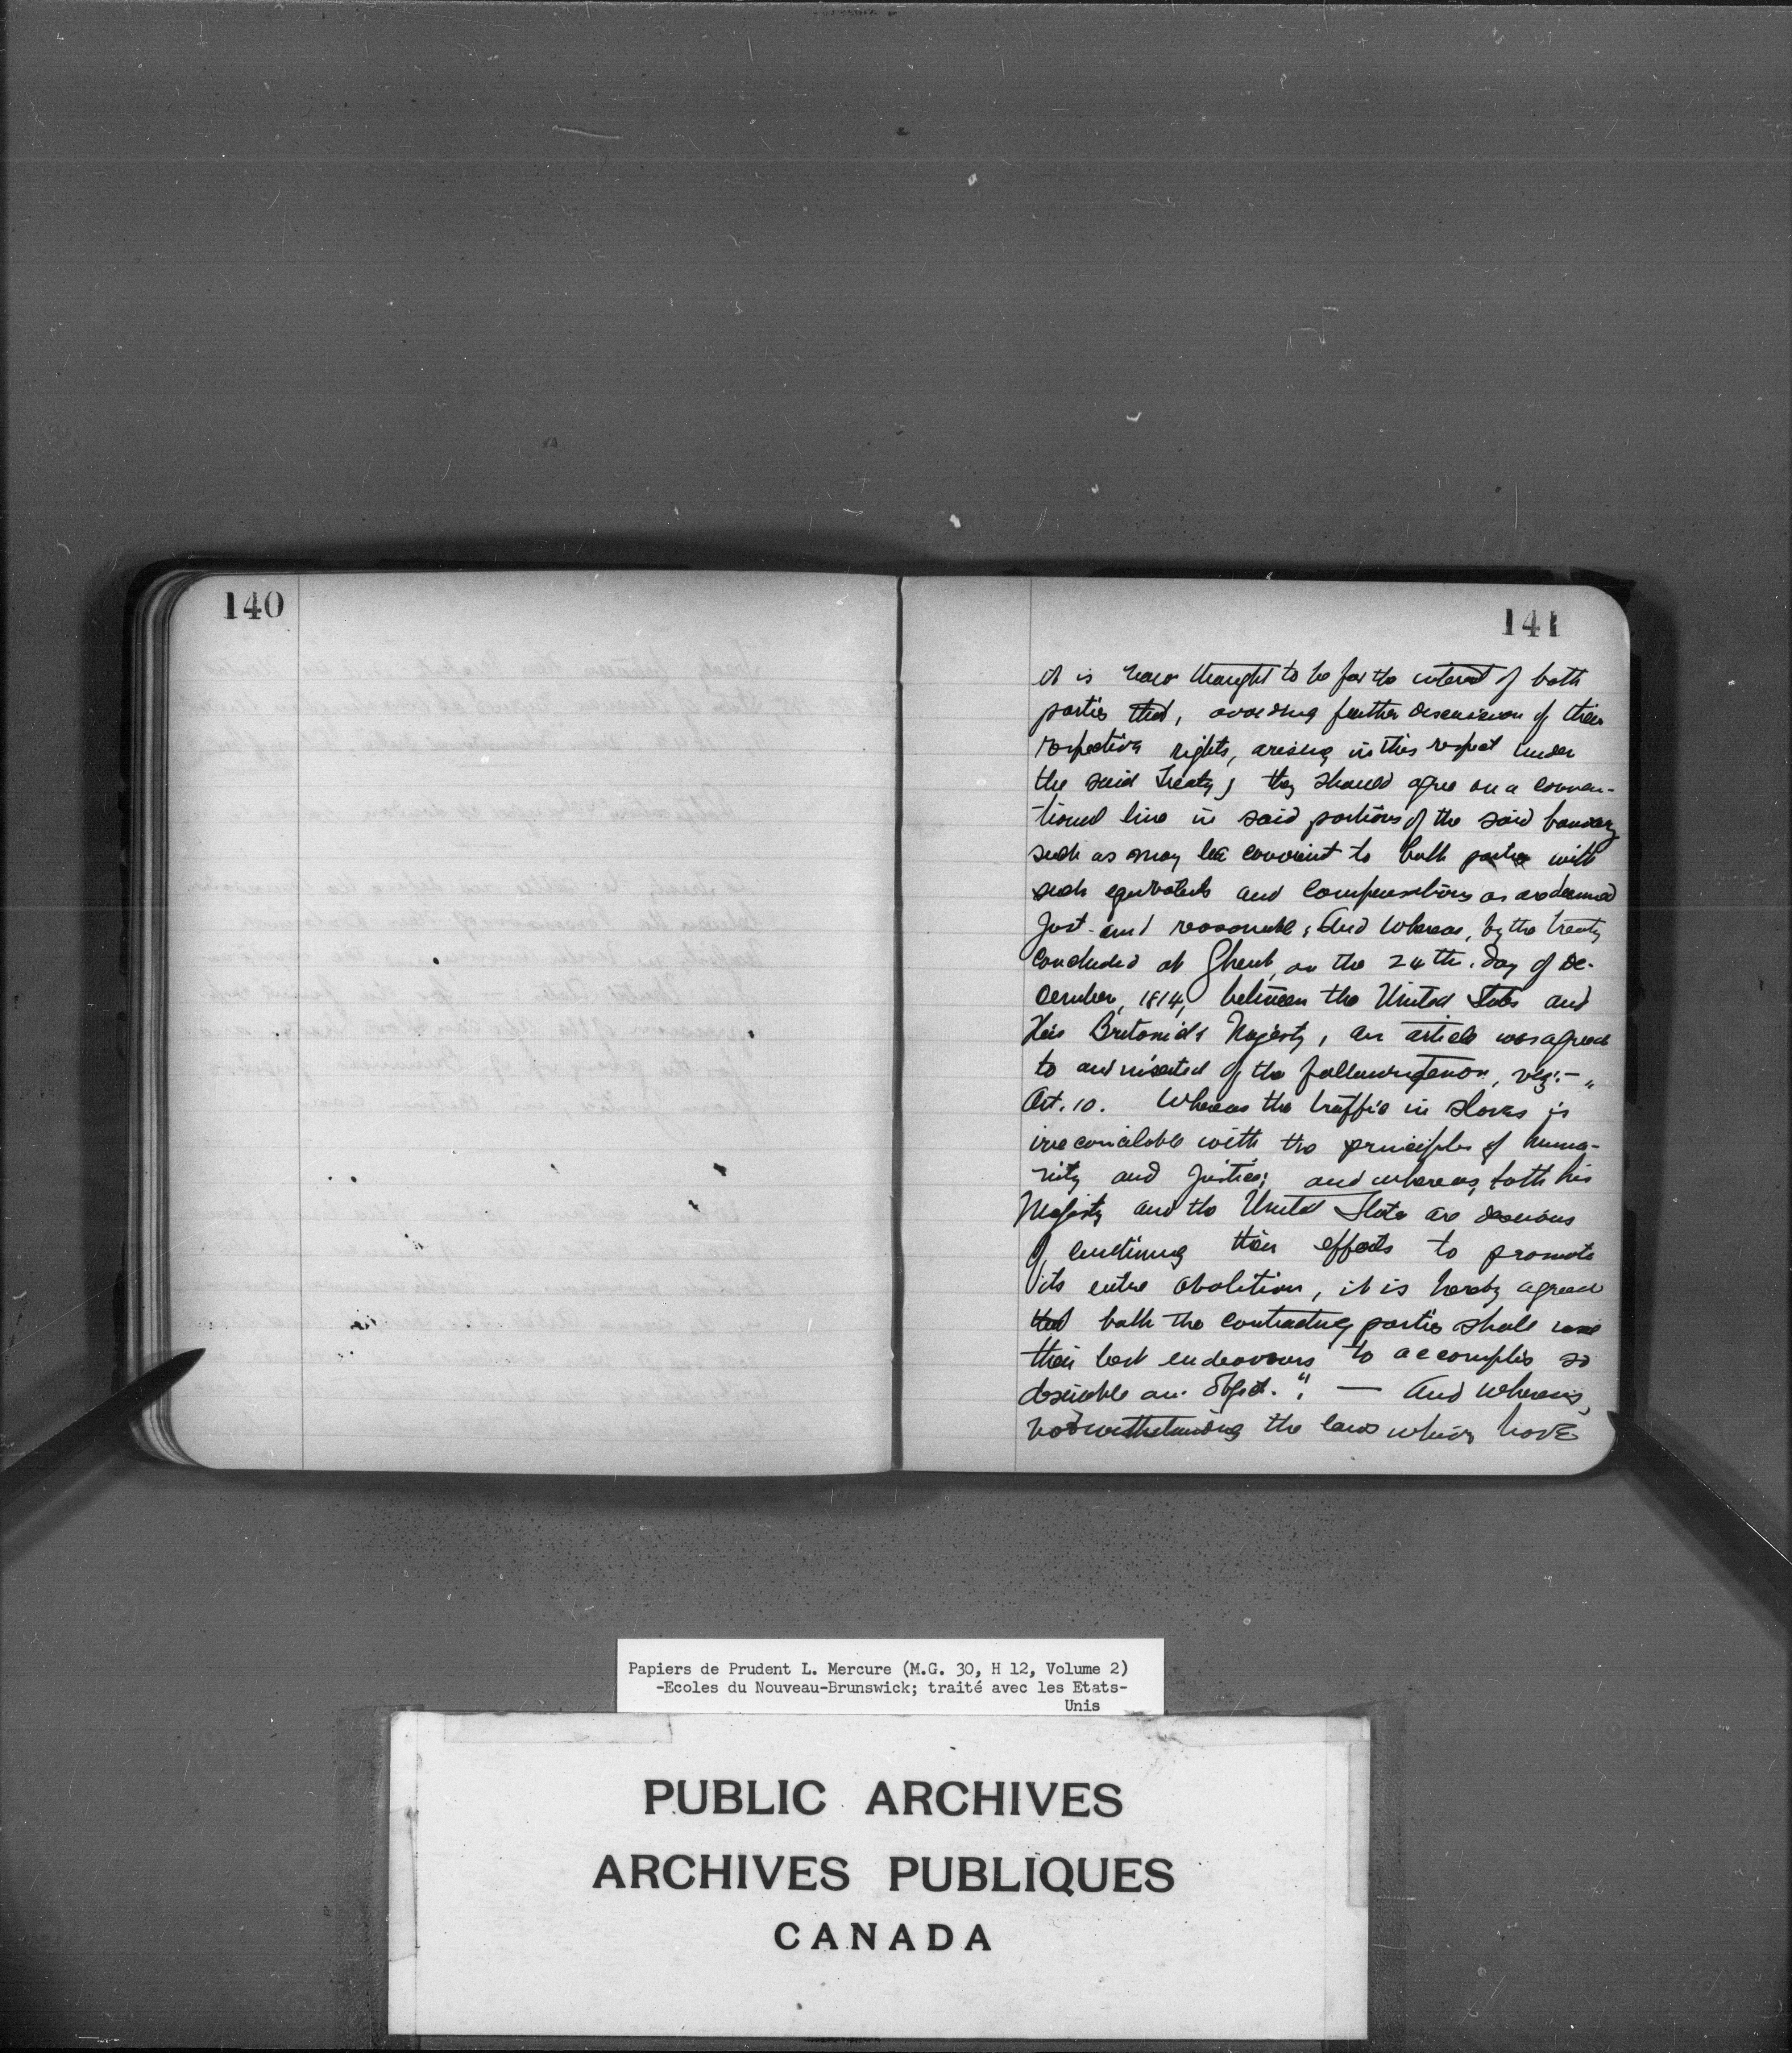 140
141
it is now thought to be for the interest of both
parties that, avoiding further discussion of their
respective rights, arising in this respect under
the said Treaty, they should agree on a conven-
tional line in said portions of the said boundary
such as may be convient to both parties with
such equivalents and compensations as are deemed
just and reasonable; And Whereas, by the treaty
concluded at Ghent, on the 24th. day of De-
cember, 1814, between the United States and
His Britanic's Majesty, an article was agreed
to and inserted of the following tenor, viz:- "
Art. 10. Whereas the traffic in slaves is
irreconcilable with the principles of huma-
nity and Justice; and whereas, both his
Majesty and the United State are desirious
of continuing their efforts to promote
its entire abolition, it is hereby agreed
that both the contracting parties shall use
their best endeavours to accomplis so
desirable an object.". — And whereas,
notwithstanding the laws which have
Papiers de Prudent L. Mercure (M.G. 30, H 12, Volume 2)
-Ecoles du Nouveau-Brunswick; traité avec les Etats-
Unis
PUBLIC ARCHIVES
ARCHIVES PUBLIQUES
CANADA